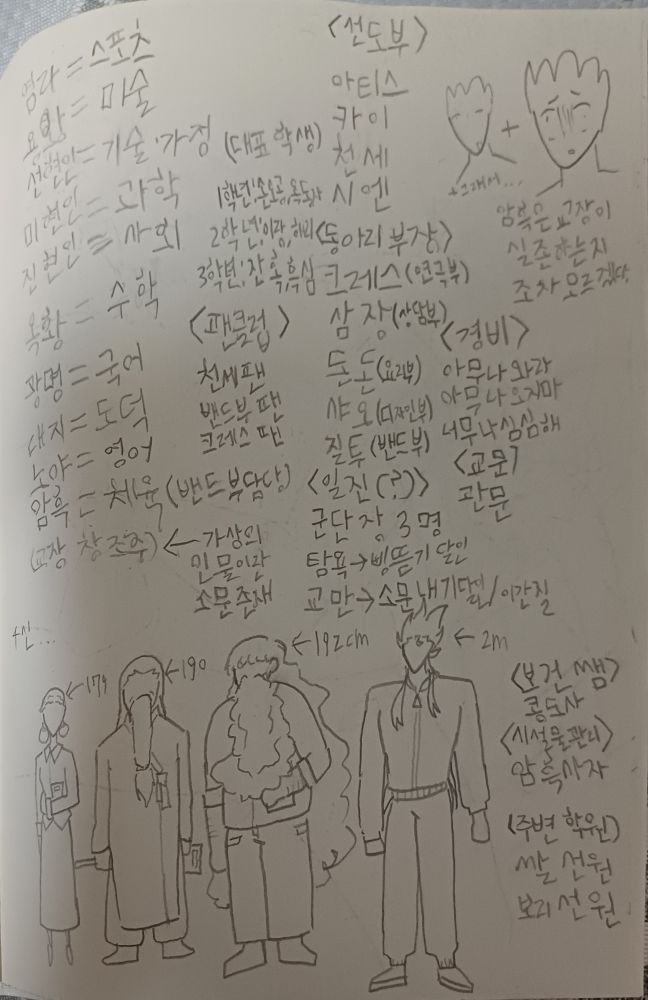 염라 = 스포츠
요왕 = 마술
선현인 = 기술·가정
미현인 = 과학
진현인 = 사회
옥황 = 수학
광명 = 국어
대지 = 도덕
노야 = 영어
암흑 = 체육 (밴드부담당)
(교장 창조주) ← 가상의
인물이란
소문존재
(대표 학생)
1학년: 손오공, 옥동자
2학년: 이랑,
3학년: 잔혹, 흑심
<팬클럽>
천세팬
밴드부 팬
크레스 팬
<선도부>
아티스
카이
천세
시엔
<동아리 부장>
크레스 (연극부)
삼장 (상담부)
돈돈 (요리부)
샤오 (디자인부)
질투 (밴드부)
<일진(?)>
군단장 3명
탐욕 → 삥뜯기 달인
교만 → 소문내기달인 / 이간질
+
+그래서...
암흑은 교장이
실존하는지
조차 모르겠다.
<경비>
아무나 와라
아무나 오지마
너무나 심심해
<교문>
관문
<보건쌤>
콩도사
<시설물관리>
암흑사자
<주변 학원>
쌀 선원
보리 선원
+신...
←179
←190
←192cm
←2m